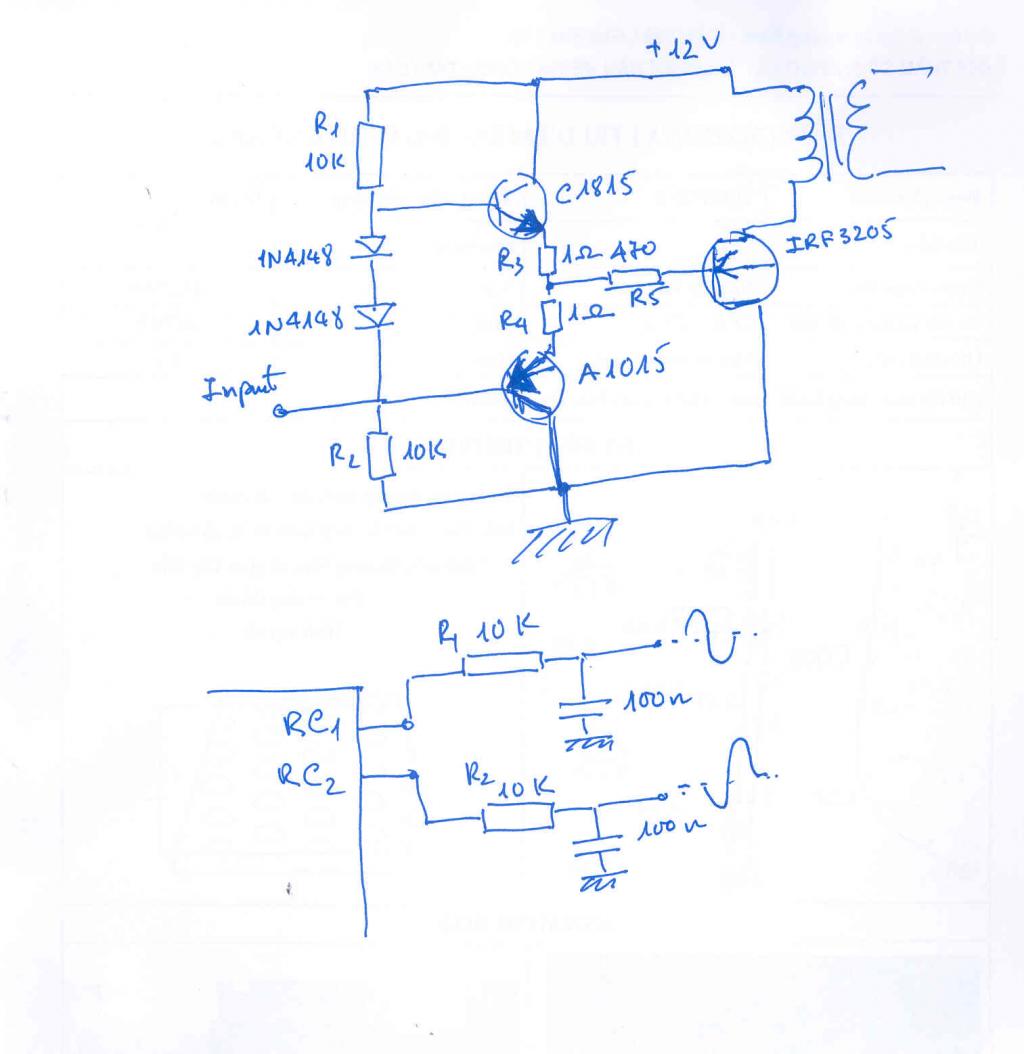 +12V
R1
10K
C1815
1N4148
R3 1Ω 470
R5
IRF3205
1N4148
R4 1Ω
A1015
Input
R2 10K
R1 10K
RC1
100n
RC2
R2 10K
100n